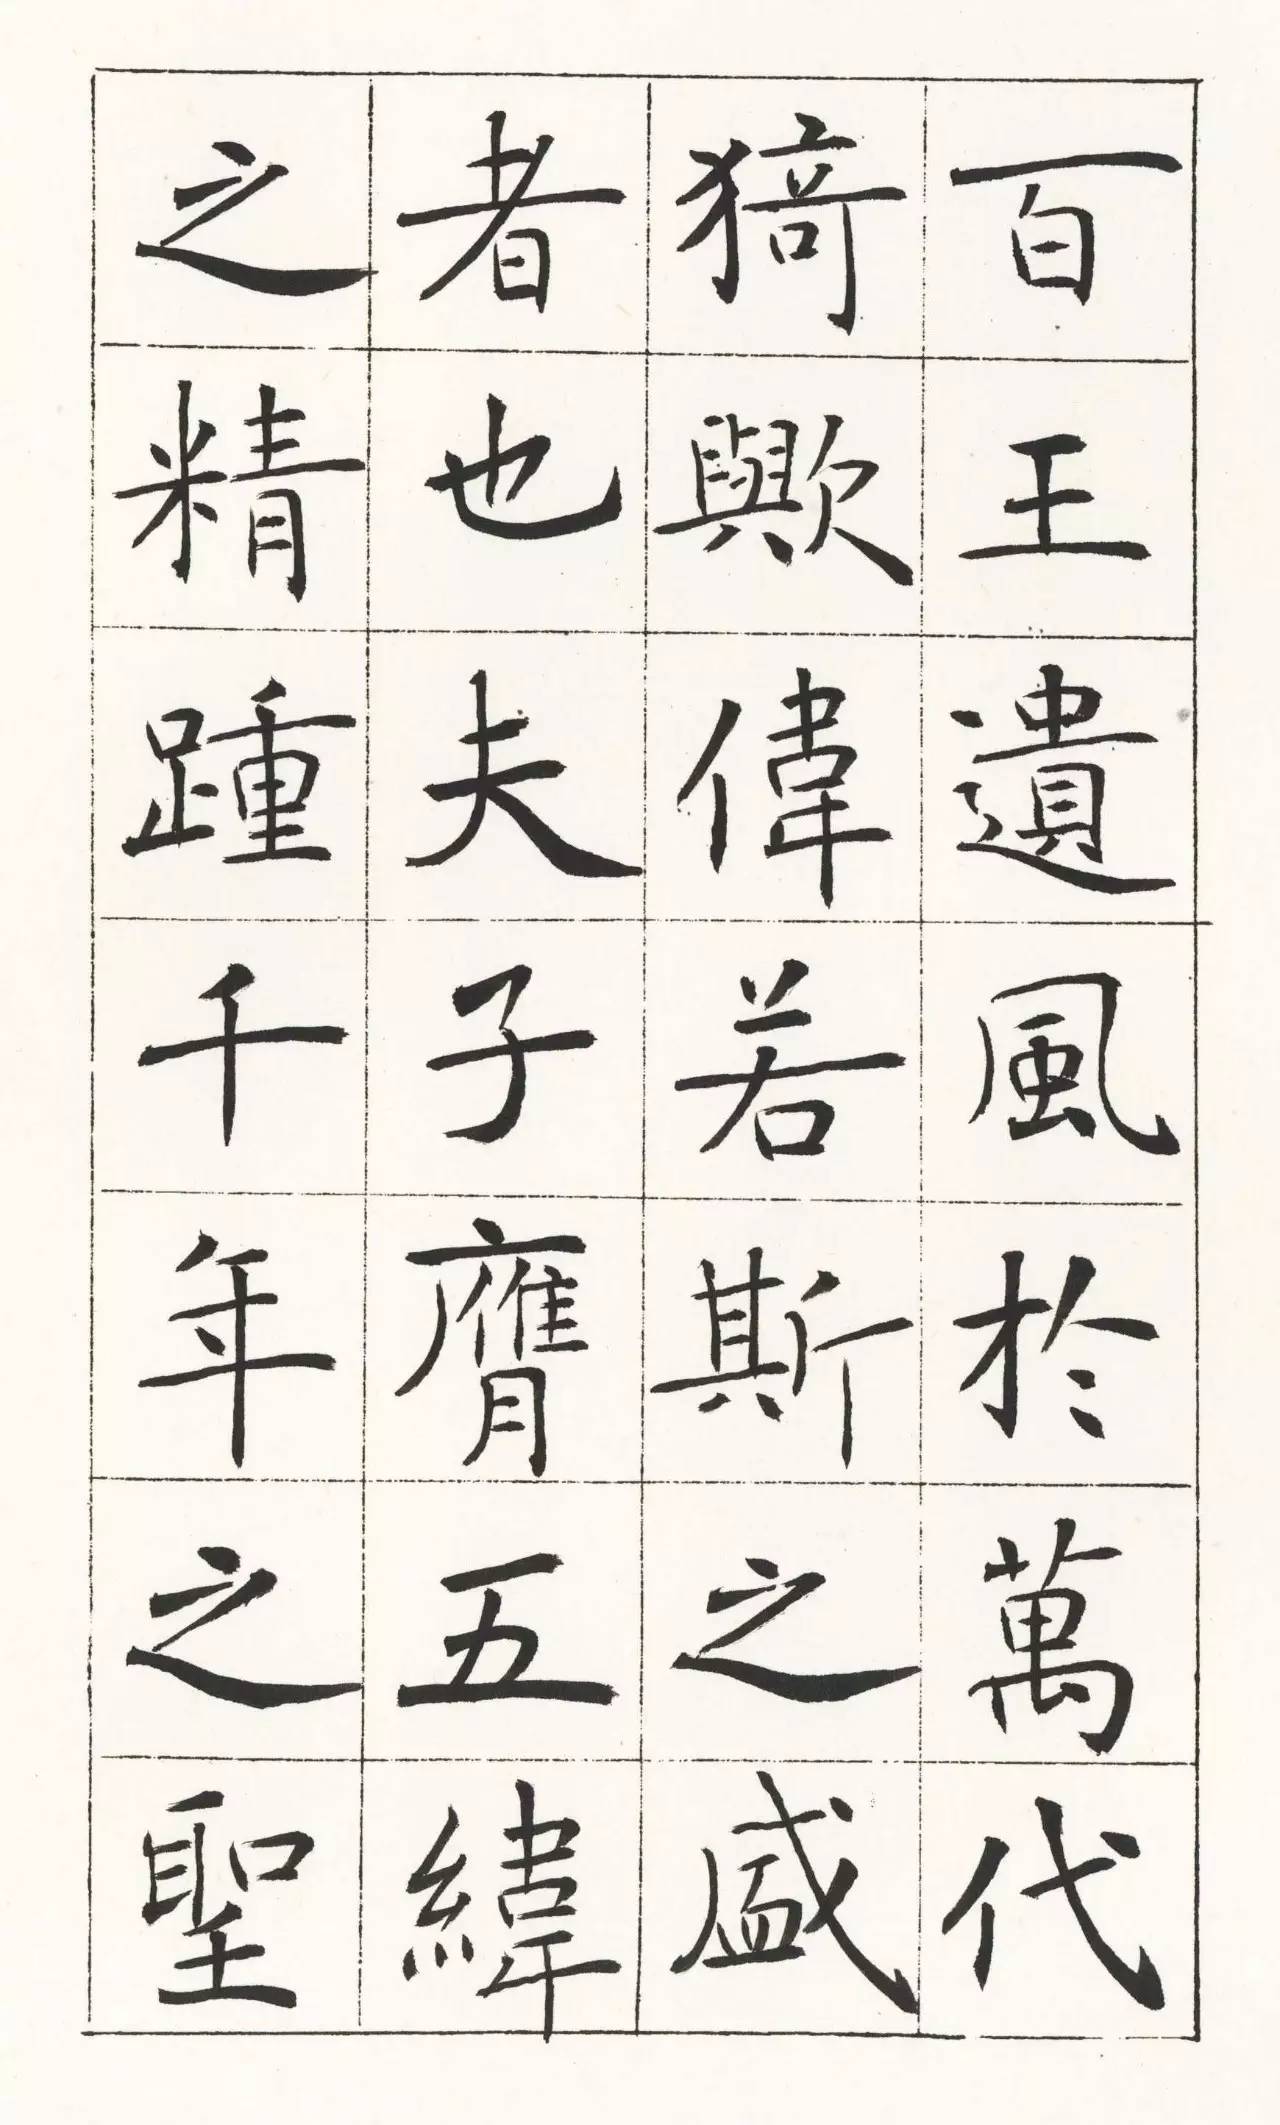 百王遺風於萬代
猗歟偉若斯之盛
者也夫子膺五緯
之精踵千年之聖